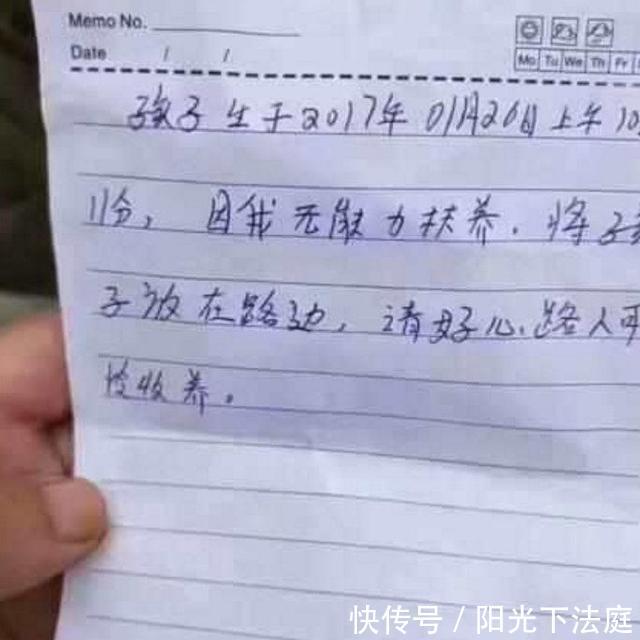 Memo No.
Date / /
Mo Tu We Th Fr
孩子生于2017年01月26日上午10
11分，因我无能力扶养．将孩
子放在路边，请好心路人可
怜收养。
快传号 / 阳光下法庭